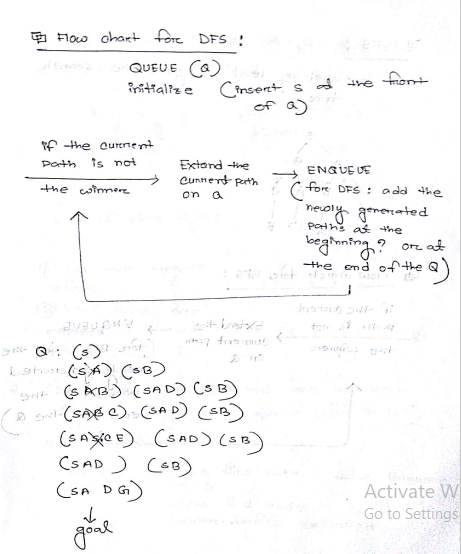 Flow chart for DFS :
QUEUE (Q)
initialize (insert s at the front
of Q)
if the current
path is not
the winner
Extend the
current path
on Q
ENQUEUE
(for DFS : add the
newly generated
paths at the
beginning? or at
the end of the Q)
Q : (S)
(SA) (SB)
(SAB) (SAD) (SB)
(SABC) (SAD) (SB)
(SABCE) (SAD) (SB)
(SAD) (SB)
(SADG)
goal
Activate W
Go to Settings